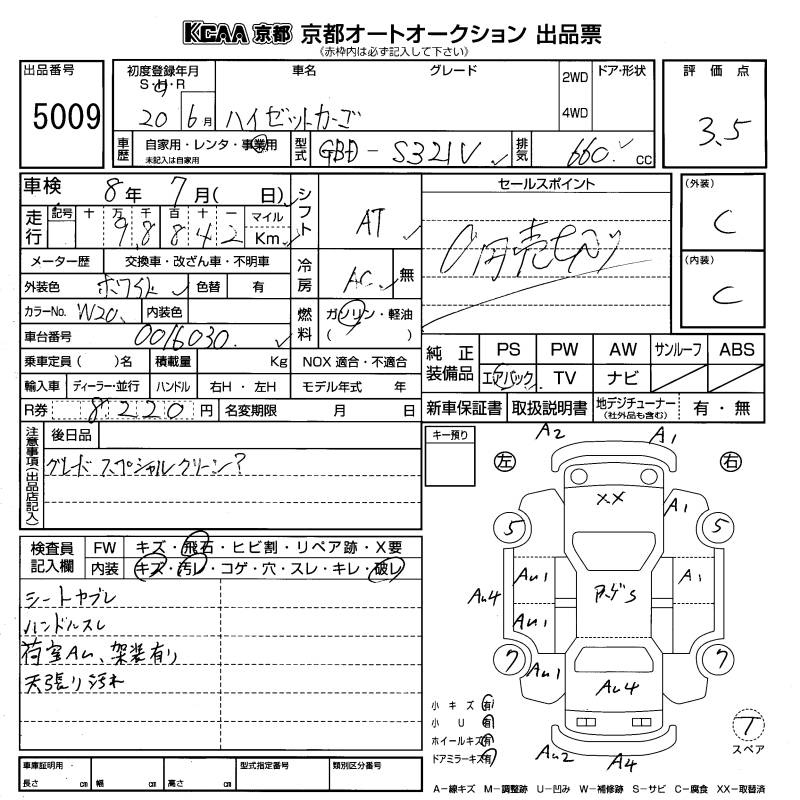 KCAA 京都 京都オートオークション 出品票
(赤枠内は必ず記入して下さい)
出品番号
5009
初度登録年月
S・H・R
20 6月
車名
グレード
ハイゼットカーゴ
2WD
4WD
ドア・形状
評価点
3.5
車歴
自家用・レンタ・事業用
未記入は自家用
型式
GBD-S321V
排気
660 cc
車検 8年 7月( 日)
走行
記号 十 万 千 百 十 一
9 8 8 4 2
マイル
Km
シフト
AT
セールスポイント
0円売切り
(外装)
C
(内装)
C
メーター歴 交換車・改ざん車・不明車
外装色 ホワイト 色替 有
冷房
AC 無
カラーNo. W20 内装色
燃料
ガソリン・軽油
( )
車台番号 0016030
乗車定員( )名 積載量 Kg NOX 適合・不適合
輸入車 ディーラー・並行 ハンドル 右H・左H モデル年式 年
R券 8220円 名変期限 月 日
純正装備品
PS PW AW サンルーフ ABS
エアバック TV ナビ
新車保証書 取扱説明書 地デジチューナー(社外品も含む) 有・無
注意事項(出品店記入)
後日品
グレード スペシャルクリーン?
キー預り
検査員記入欄
FW キズ・飛石・ヒビ割・リペア跡・X要
内装 キズ・汚レ・コゲ・穴・スレ・キレ・破レ
シートヤブレ
ハンドルスレ
荷室AU、架装有り
天張り汚れ
A2 A1
左 右
XX
A1
5 5
AU1 A1
AU4
AU1
7 7
AU1
AU4
AU2 A4
小キズ 有
小U 有
ホイールキズ 有
ドアミラーキズ 有
T
スペア
車庫証明用
長さ cm 幅 cm 高さ cm
型式指定番号
類別区分番号
A-線キズ M-調整跡 U-凹み W-補修跡 S-サビ C-腐食 XX-取替済